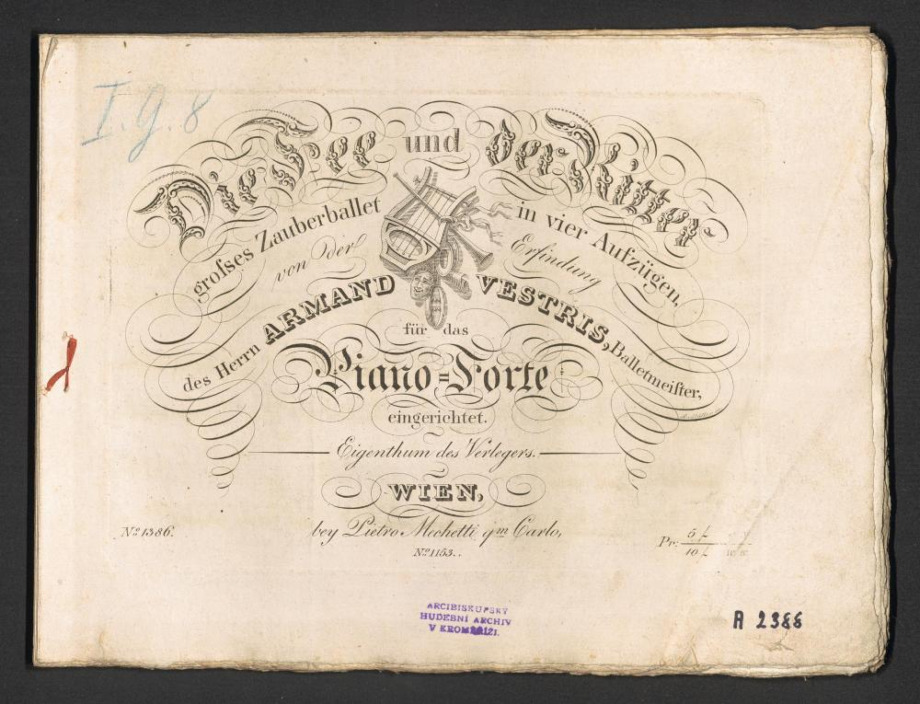 I. g. 8
Die Fee und der Ritter
großes Zauberballet in vier Aufzügen,
von der Erfindung
des Herrn ARMAND VESTRIS, Balletmeister,
für das
Piano=Forte
eingerichtet.
Eigenthum des Verlegers.
WIEN,
bey Pietro Mechetti qm Carlo,
No 1386.
No 1153.
Pr. 5 f
10 f
ARCIBISKUPSKÝ
HUDEBNÍ ARCHIV
V KROMĚŘÍŽI.
A 2388